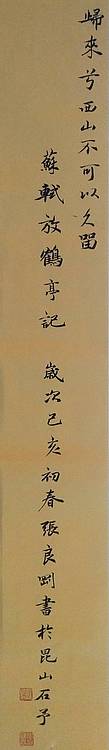 歸來兮西山不可以久留
蘇軾放鶴亭記 歲次己亥初春張良剛書於昆山石予